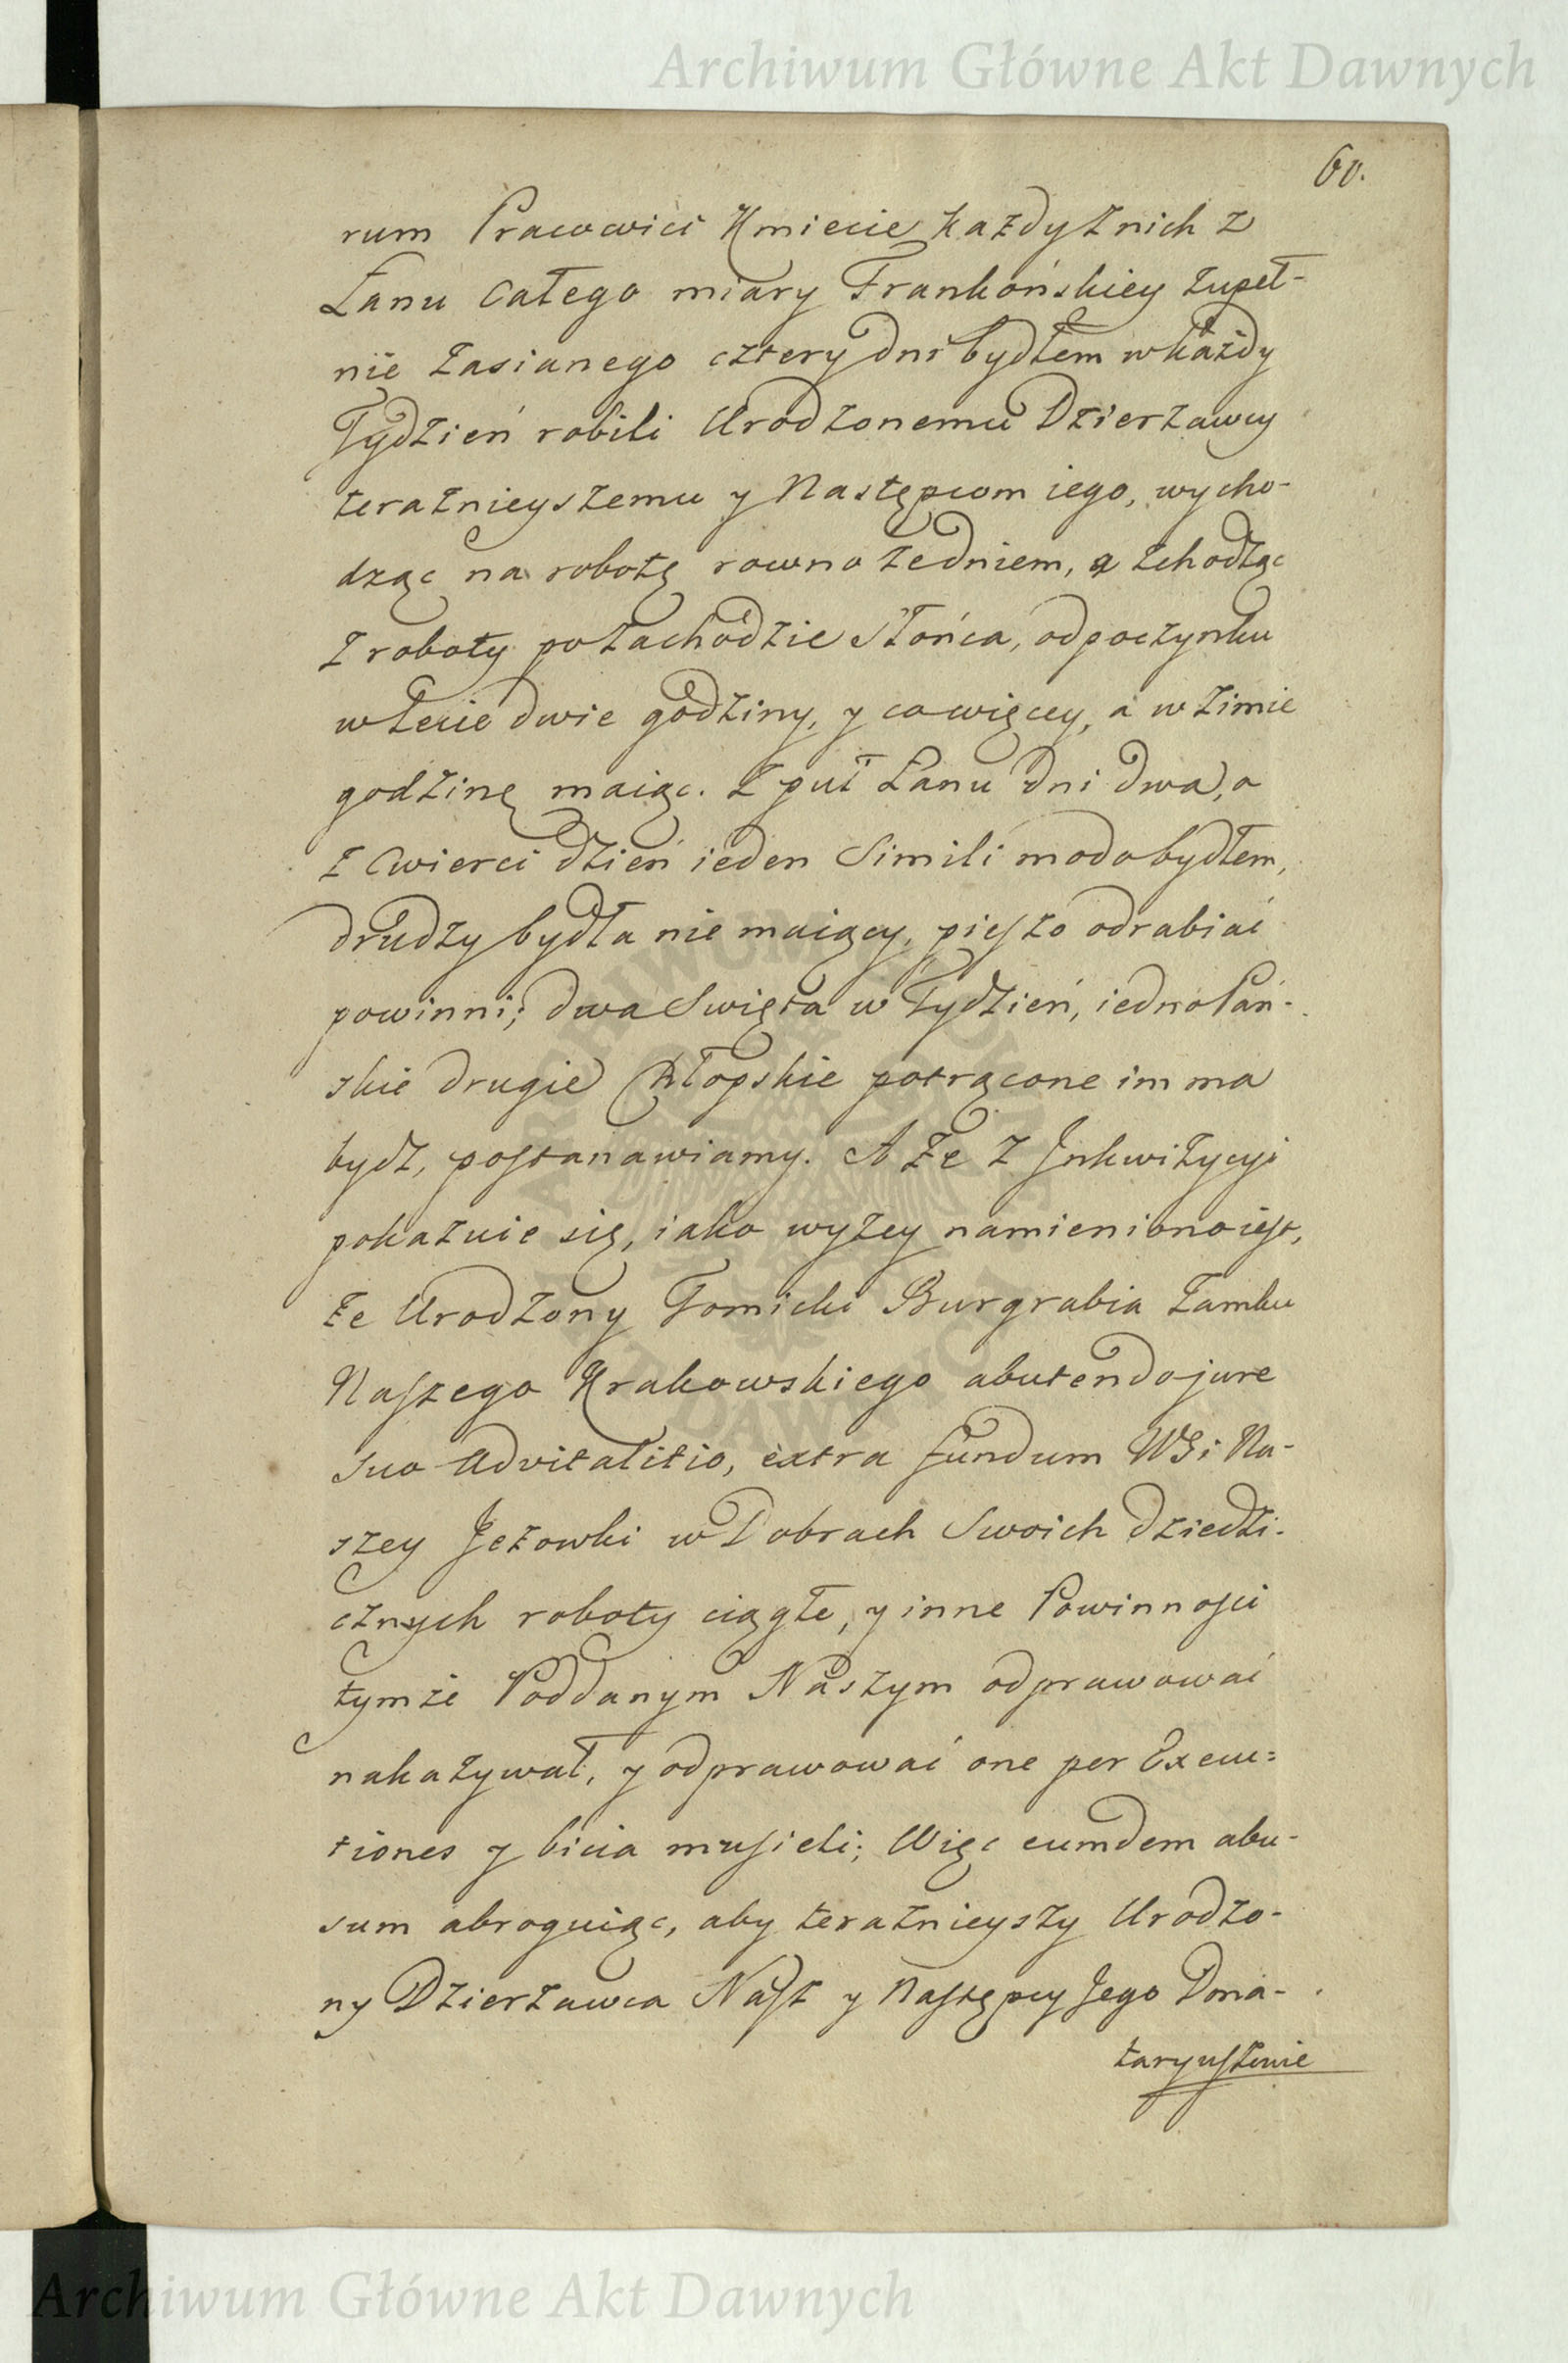 Archiwum Główne Akt Dawnych
60.
rum Pracowici Kmiecie każdy z nich z
Łanu całego miary Frankońskiey zupeł-
nie zasianego cztery dni bydłem w każdy
Tydzień robili Urodzonemu Dzierzawcy
teraznieyszemu y Następcom iego, wycho-
dząc na robotę rowno ze dniem, a zchodząc
z roboty po zachodzie Słońca, odpoczynku
w lecie dwie godziny, y co więcey, a w zimie
godzinę maiąc. Z puł Łanu dni dwa, a
z cwierci dzień ieden Simili modo bydłem,
drudzy bydła nie maiący, pieszo odrabiać
powinni; dwa Swięta w Tydzień, iedno Pań-
skie drugie Chłopskie potrącone im ma
bydz, postanawiamy. A że z Jnkwizycyi
pokazuie się, iako wyzey namieniono iest,
że Urodzony Tomicki Burgrabia Zamku
Naszego Krakowskiego abutendo jure
suo advitalitio, extra fundum WSi Na-
szey Jeżowki w Dobrach Swoich dziedzi-
cznych roboty ciągłe, y inne Powinności
tymże Poddanym Naszym odprawować
nakazywał, y odprawować one per Execu=
tiones y bicia musieli; Więc eumdem abu-
sum abroguiąc, aby teraznieyszy Urodzo-
ny Dzierzawca Nasz y Następcy Jego Dona-
taryuszowie
ARCHIWUM GŁÓWNE AKT DAWNYCH
Archiwum Główne Akt Dawnych